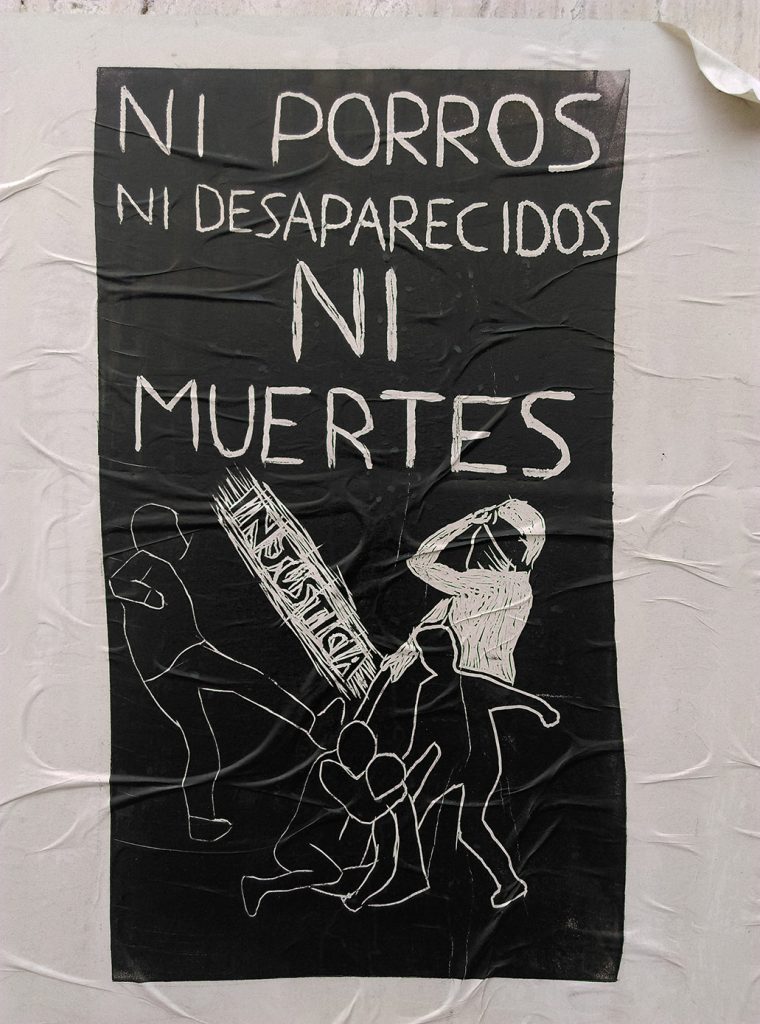 NI PORROS
NI DESAPARECIDOS
NI
MUERTES
INJUSTICIA